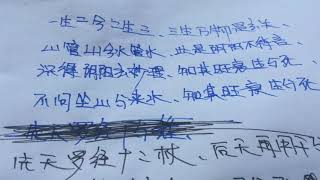 一生二兮二生三、三生万物是玄关、
山管山兮水管水、此是阴阳不待言、
识得阴阳玄妙理、知其旺衰生与死、
不问坐山与来水、知其旺衰生与死、
先天罗经十二
先天罗经十二枝、后天再用干与